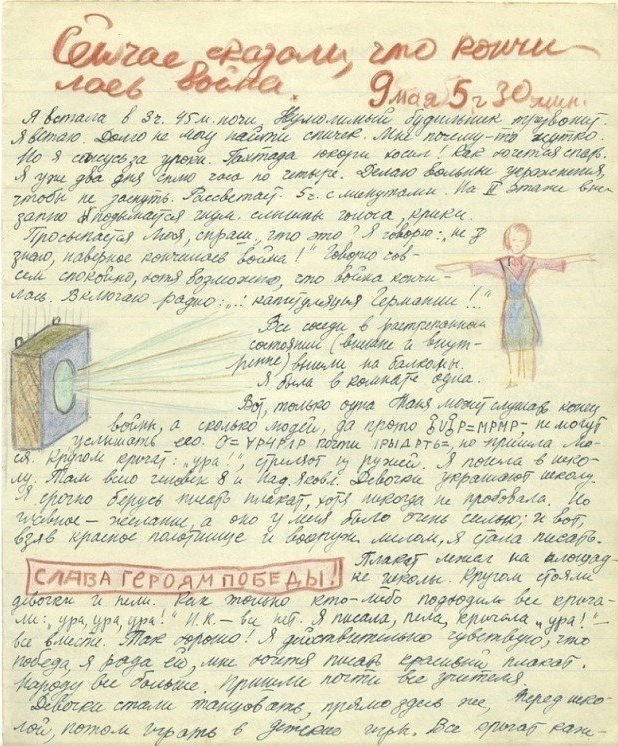 Сейчас сказали, что кончи-
лась война. 9 мая 5 ч 30 мин.
Я встала в 3 ч. 45 м. ночи. Неумолимый будильник трезвонит.
Я встаю. Долго не могу найти спичек. Мне почему-то жутко.
Но я сажусь за уроки. Как хочется спать.
Я уже два дня сплю часа по четыре. Делаю вольные упражнения,
чтобы не заснуть. Рассветает. 5 ч. с минутами. На II этаже вне-
запно поднимается шум. слышны голоса, крики.
Просыпается Люся, спраш., что это? Я говорю: „не
знаю, наверное кончилась война!" Говорю сов-
сем спокойно, хотя возможно, что война кончи-
лась. Включаю радио: „... капитуляция Германии!.."
Все соседи в растрепанном
состоянии (внешне и внут-
ренне) вышли на балконы.
Я была в комнате одна.
Вот, только одна Таня может слушать конец
войны, а сколько людей, да просто не могут
услышать его. почти не пришла Лю-
ся. Кругом кричат: „ура!", стреляют из ружей. Я пошла в шко-
лу. Там всего человек 8 и Над. Яковл. Девочки украшают школу.
Я срочно берусь писать плакат, хотя никогда не пробовала. Но
главное – желание, а оно у меня было очень сильно; и вот,
взяв красное полотнище и вооруж. мелом, я стала писать.
СЛАВА ГЕРОЯМ ПОБЕДЫ! Плакат лежал на площад-
ке школы. Кругом стояли
девочки и пели. Как только кто-либо подходил все крича-
ли: „ура, ура, ура!" И.К. – все нет. Я писала, пела, кричала „ура!" –
все вместе. Так хорошо! Я действительно чувствую, что
победа, я рада ей, мне хочется писать красивый плакат.
Народу все больше. Пришли почти все учителя.
Девочки стали танцовать, прямо здесь же, перед шко-
лой, потом играть в детские игры. Все кричат каж-